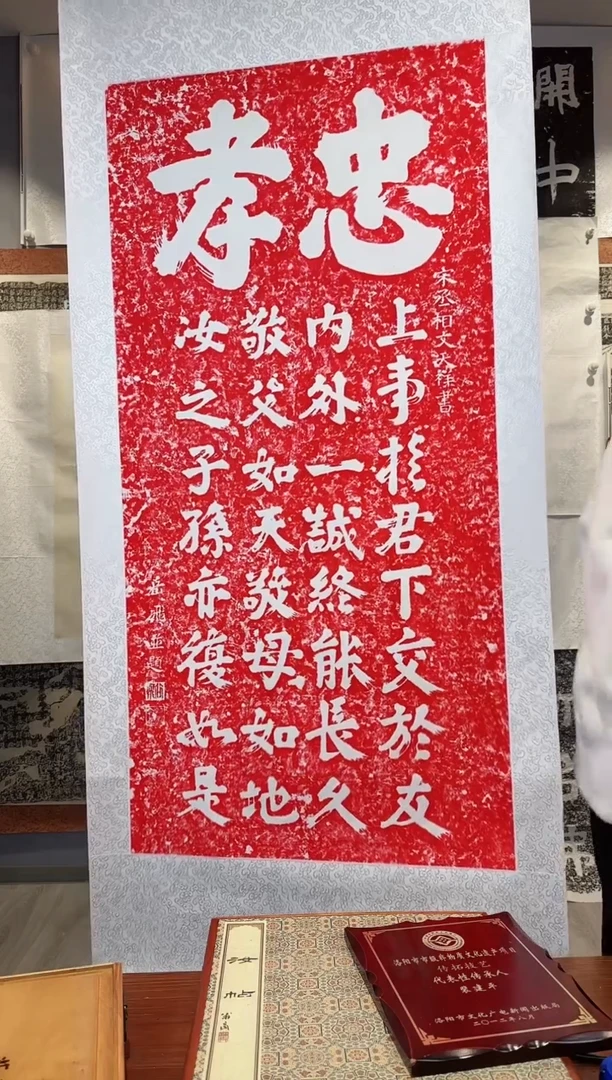 忠孝
宋丞相文天祥書
上事於君下交於友
內外一誠終能長久
敬父如天敬母如地
汝之子孫亦復如是
岳飛並題
開中
洛阳市市级非物质文化遗产项目
传拓技艺
代表性传承人
裴建平
洛阳市文化广电新闻出版局
二〇一二年八月